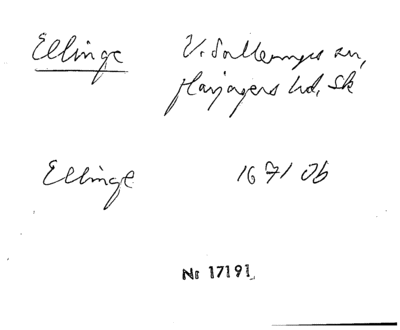 Ellinge V. Sallerups sn,
Harjagers hd, Sk
Ellinge 1671 Jb
Nr 17191